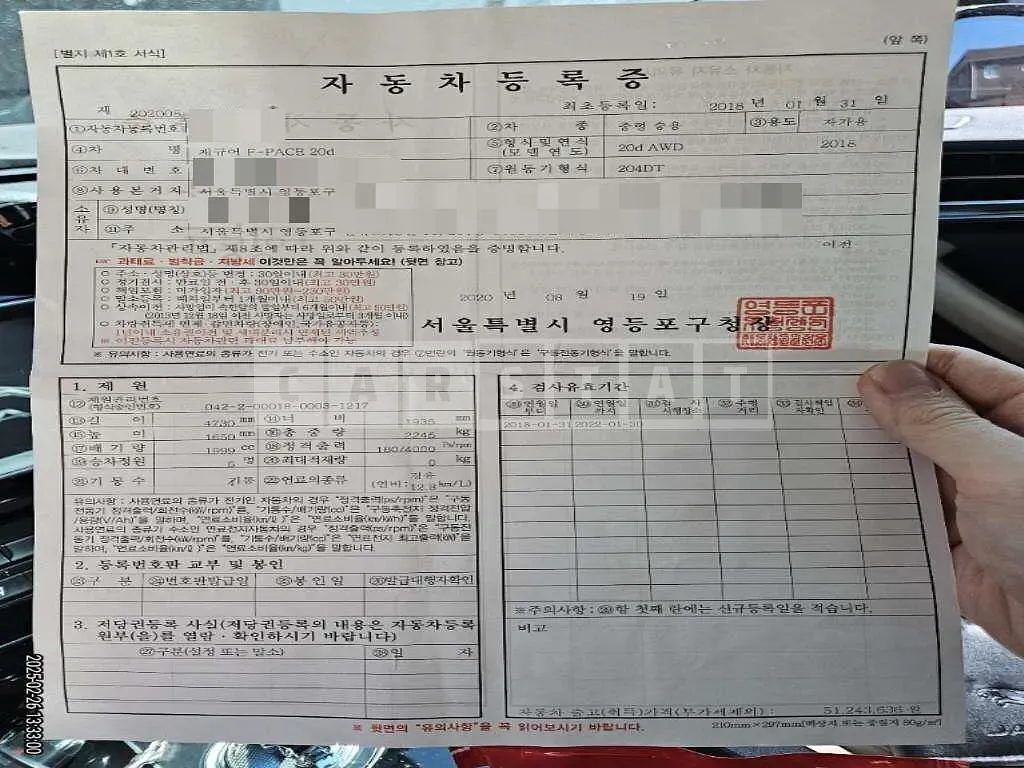 [별지 제1호 서식]
(앞 쪽)
자 동 차 등 록 증
제 202008
최초등록일: 2018 년 01 월 31 일
①자동차등록번호 ②차 종 중형 승용 ③용도 자가용
④차 명 재규어 F-PACE 20d ⑤형식 및 연식 (모델 연도) 20d AWD 2018
⑥차 대 번 호 ⑦원 동 기 형 식 204DT
⑧사 용 본 거 지 서울특별시 영등포구
소유자 ⑨성명(명칭)
⑪주 소 서울특별시 영등포구
「자동차관리법」 제8조에 따라 위와 같이 등록하였음을 증명합니다.
이전
☞ 과태료·범칙금·지방세 이것만은 꼭 알아두세요! (뒷면 참고)
○ 주소·성명(상호)등 변경 : 30일이내(최고 30만원)
○ 정기검사 : 만료일 전·후 30일이내(최고 30만원)
○ 책임보험 : 미가입자(최고 90만원~230만원)
○ 말소등록 : 폐차일부터 1개월이내(최고 50만원)
○ 상속이전 : 사망일이 속한달의 말일부터 6개월이내(최고 50만원)
(2013년 12월 18일 이전 사망자는 사망일로부터 3개월 이내)
○ 차량취득세 면제·감면차량(장애인,국가유공자등) :
1년이내 소유권이전 및 세대분리시 면제된 세액 추징
※ 이전등록시 자동차관련 과태료 납부해야 가능
2020 년 08 월 19 일
서울특별시 영등포구청장
※ 유의사항 : 사용연료의 종류가 전기 또는 수소인 자동차의 경우 ⑦번란의 "원동기형식"은 "구동전동기형식"을 말합니다.
CARSTAT
1. 제 원
⑫제원관리번호 (형식승인번호) 042-2-00018-0003-1217
⑬길 이 4730 mm ⑭너 비 1935 mm
⑮높 이 1650 mm ⑯총 중 량 2245 kg
⑰배 기 량 1999 cc ⑱정격출력 180/4000 Ps/rpm
⑲승차정원 5 명 ⑳최대적재량 0 kg
㉑기 통 수 기통 ㉒연료의종류 경유 (연비: 12.8 km/L)
유의사항 : 사용연료의 종류가 전기인 자동차의 경우 "정격출력(ps/rpm)"은 "구동
전동기 정격출력/회전수(kW/rpm)"를, "기통수/배기량(cc)"은 "구동축전지 정격전압
/용량(V/Ah)"을 말하며, "연료소비율(km/ℓ)"은 "연료소비율(km/kWh)"을 말합니다.
사용연료의 종류가 수소인 연료전지자동차의 경우 "정격출력(ps/rpm)"은 "구동전
동기 정격출력/회전수(kW/rpm)"를, "기통수/배기량(cc)"은 "연료전지 최고출력(kW)"을
말하며, "연료소비율(km/ℓ)"은 "연료소비율(km/kg)"을 말합니다.
2. 등록번호판 교부 및 봉인
㉓구 분 ㉔번호판발급일 ㉕봉 인 일 ㉖발급대행자확인
3. 저당권등록 사실(저당권등록의 내용은 자동차등록
원부(을)를 열람·확인하시기 바랍니다)
㉗구분(설정 또는 말소) ㉘일 자
4. 검사유효기간
㉙연월일 부터 ㉚연월일 까지 ㉛검 사 시행장소 ㉜주행 거리 ㉝검사책임 자확인
2018-01-31 2022-01-30
※주의사항 : ㉙란 첫째 란에는 신규등록일을 적습니다.
비고
자동차 출고(취득)가격(부가세제외) : 51,243,636 원
※ 뒷면의 "유의사항"을 꼭 읽어보시기 바랍니다.
210mm×297mm[백상지 또는 중질지 80g/㎡]
2025-02-26 13:33:00